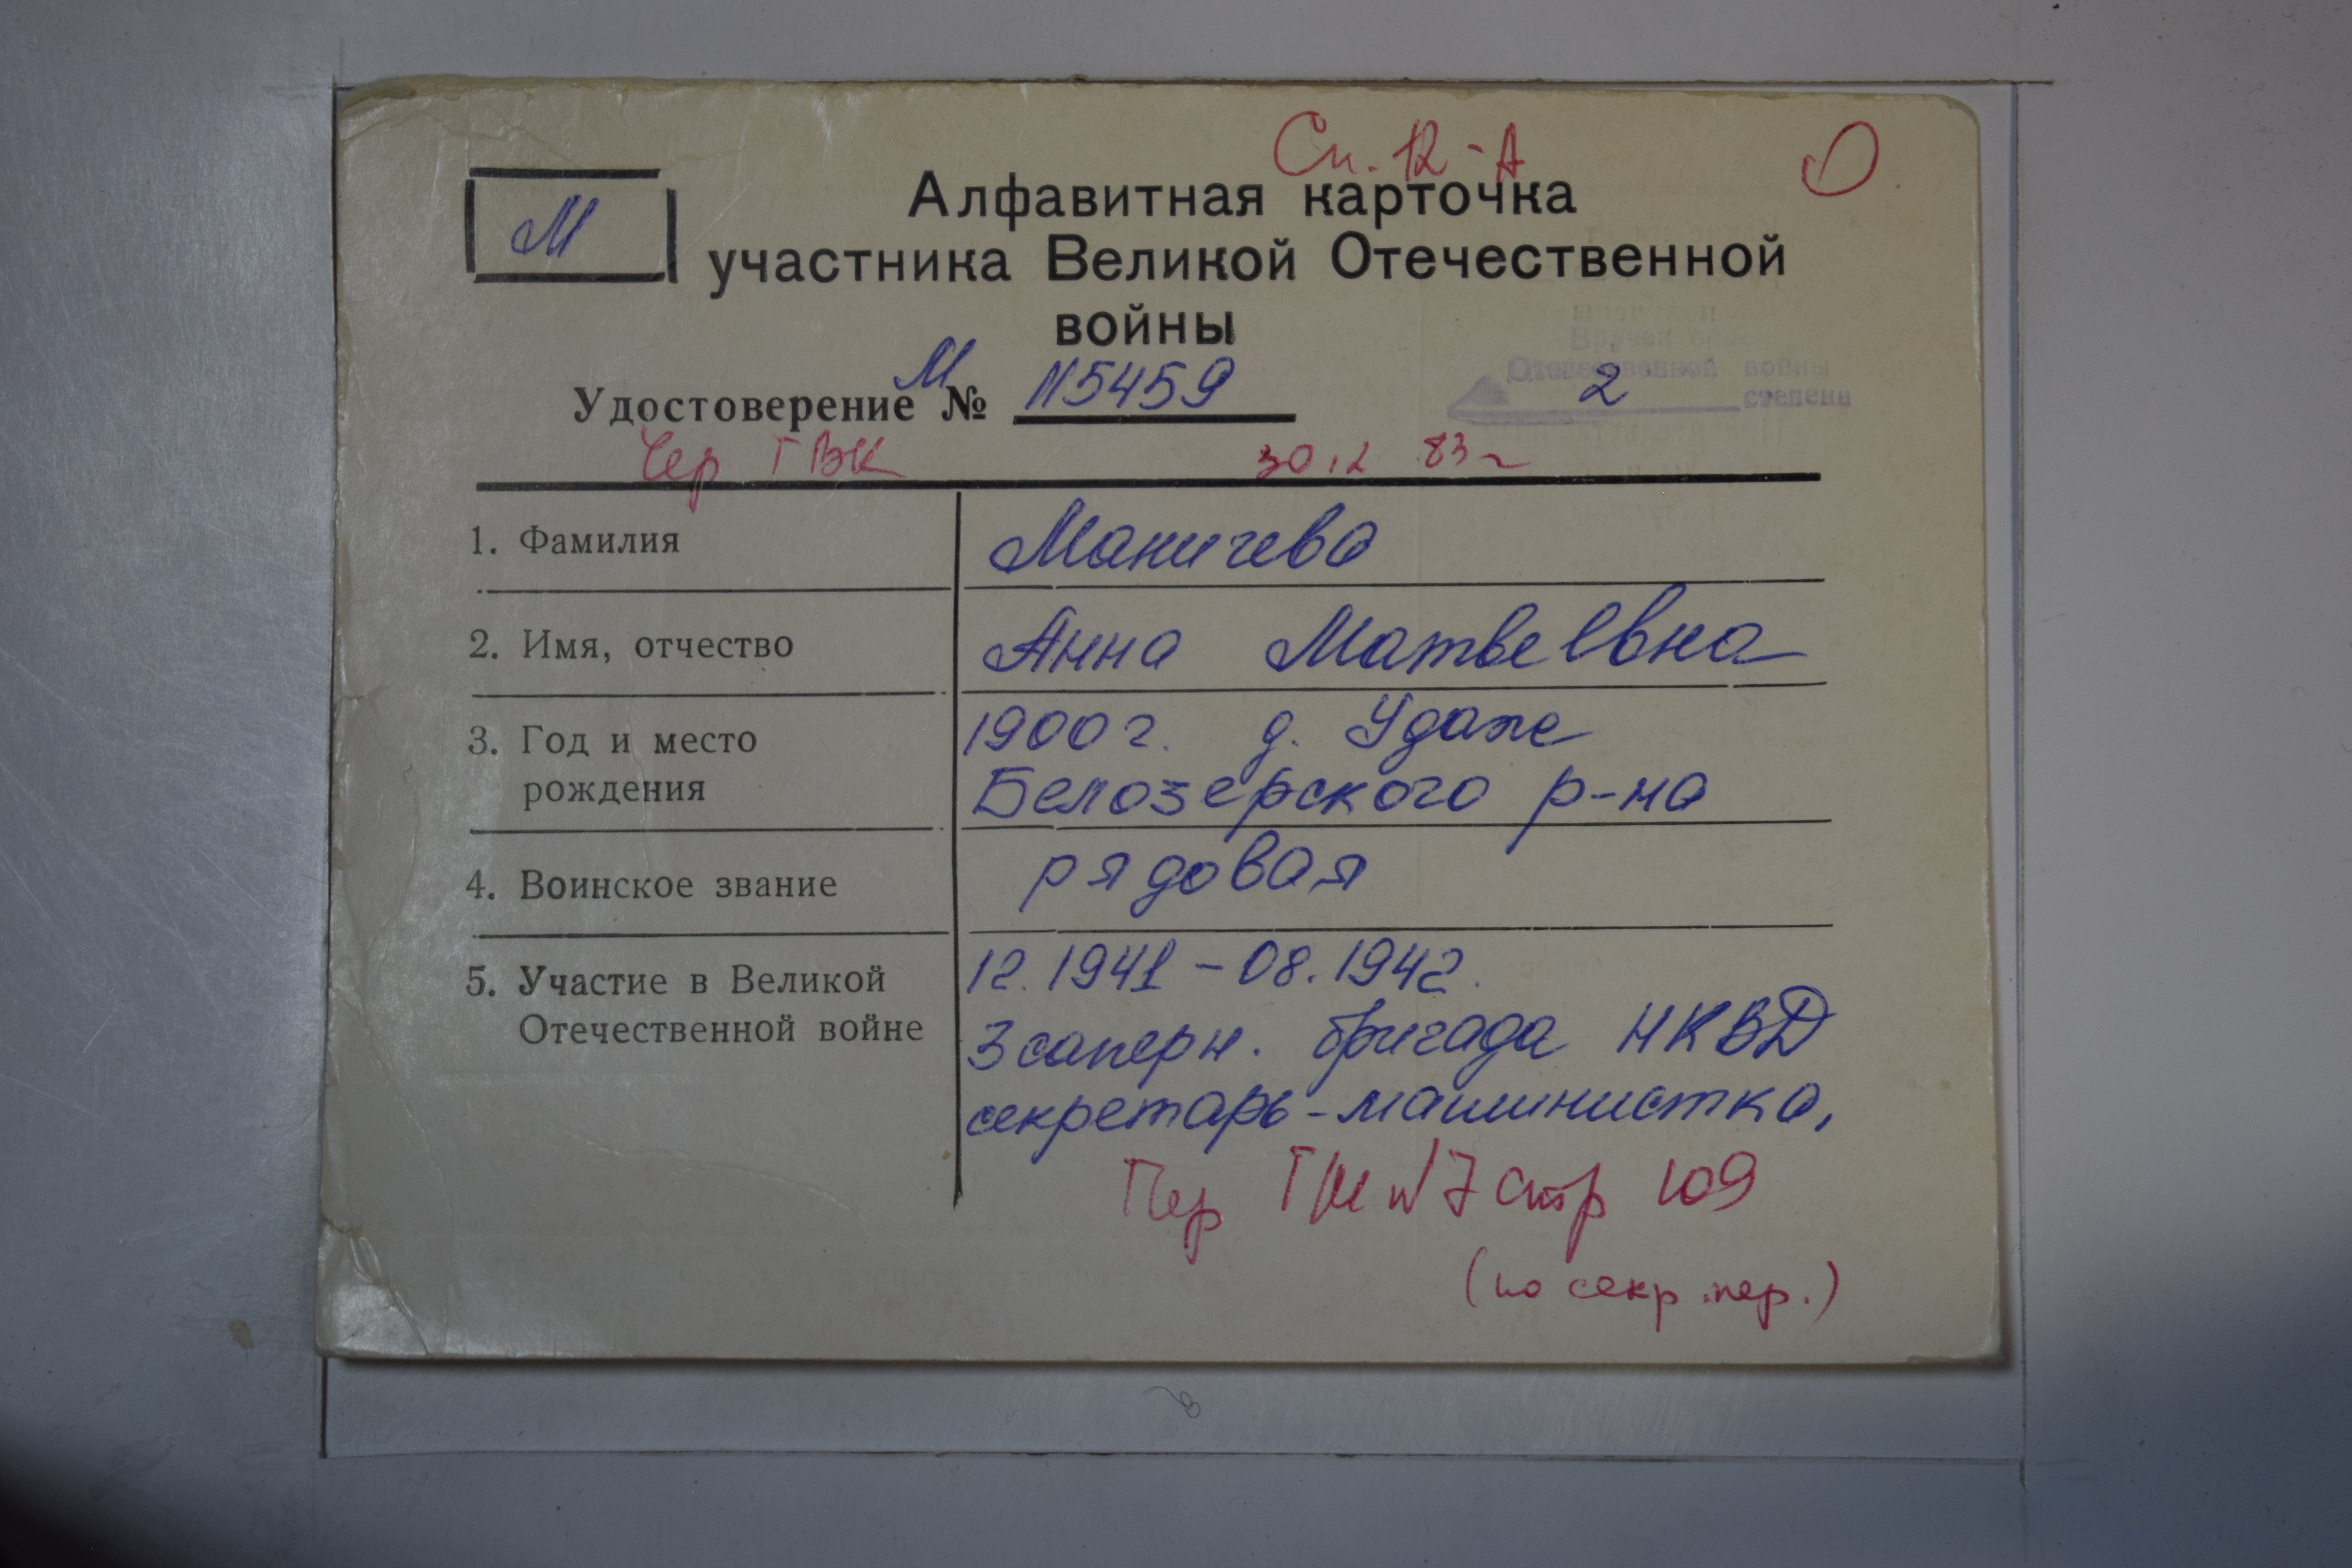 Сп. 12-А
М
Алфавитная карточка
участника Великой Отечественной
войны
Вручен орд
Отечественной войны
2 степени
Удостоверение М № 115459
Чер ГВК 30.12 83г
1. Фамилия Маничева
2. Имя, отчество Анна Матвеевна
3. Год и место рождения 1900г. д.
Белозерского р-на
4. Воинское звание рядовая
5. Участие в Великой Отечественной войне 12.1941-08.1942.
3 саперн. бригада НКВД
секретарь-машинистка,
Пер 7 стр 109
(по секр. пер.)